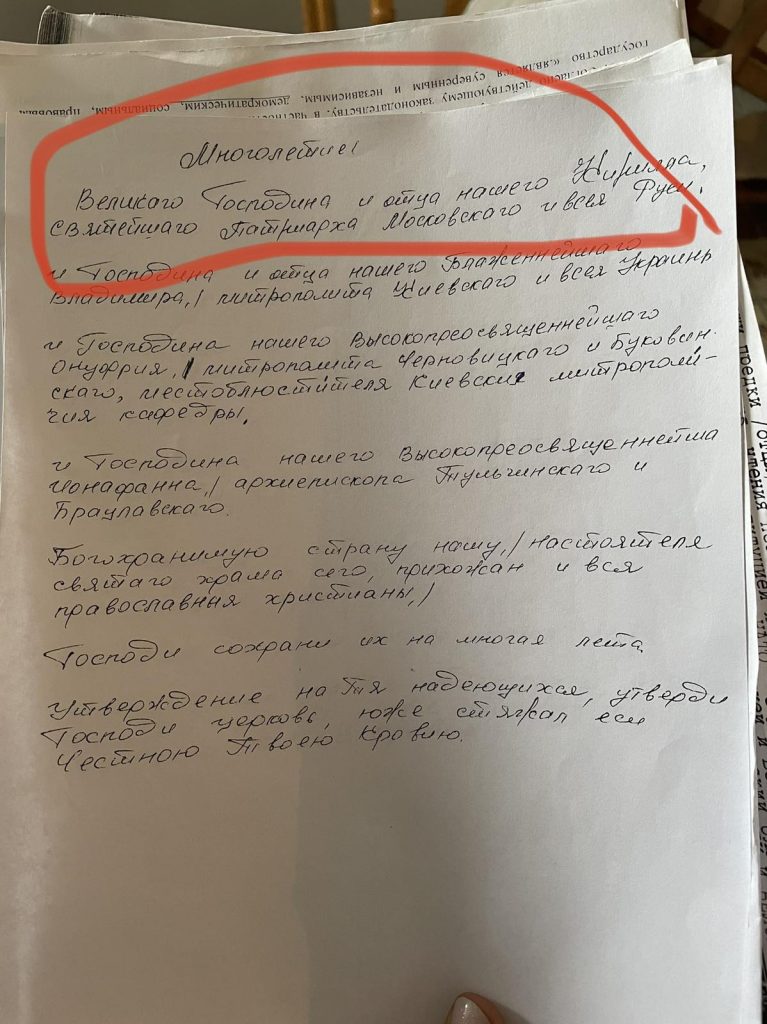 государство «является суверенным и независимым, демократическим, социальным, правовым
Согласно действующему законодательству, в частности
Многолетие!
Великаго Господина и отца нашего Кирилла,
святейшаго Патриарха Московскаго и всея Руси,
и Господина и отца нашего Блаженнейшаго
Владимира,/ митрополита Киевскаго и всея Украины
и Господина нашего Высокопреосвященнейшаго
Онуфрия,/ митрополита Черновицкаго и Буковин-
скаго, местоблюстителя Киевския митрополи-
чия кафедры.
и Господина нашего Высокопреосвященнейша
Ионафанна,/ архиепископа Тульчинскаго и
Браулавскаго.
Богохранимую страну нашу,/ настоятеля
святаго храма сего, прихожан и вся
православныя христианы,/
Господи сохрани их на многая лета.
Утверждение на Тя надеющихся, утверди
Господи церковь, юже стяжал еси
Честною Твоею Кровию.
предки